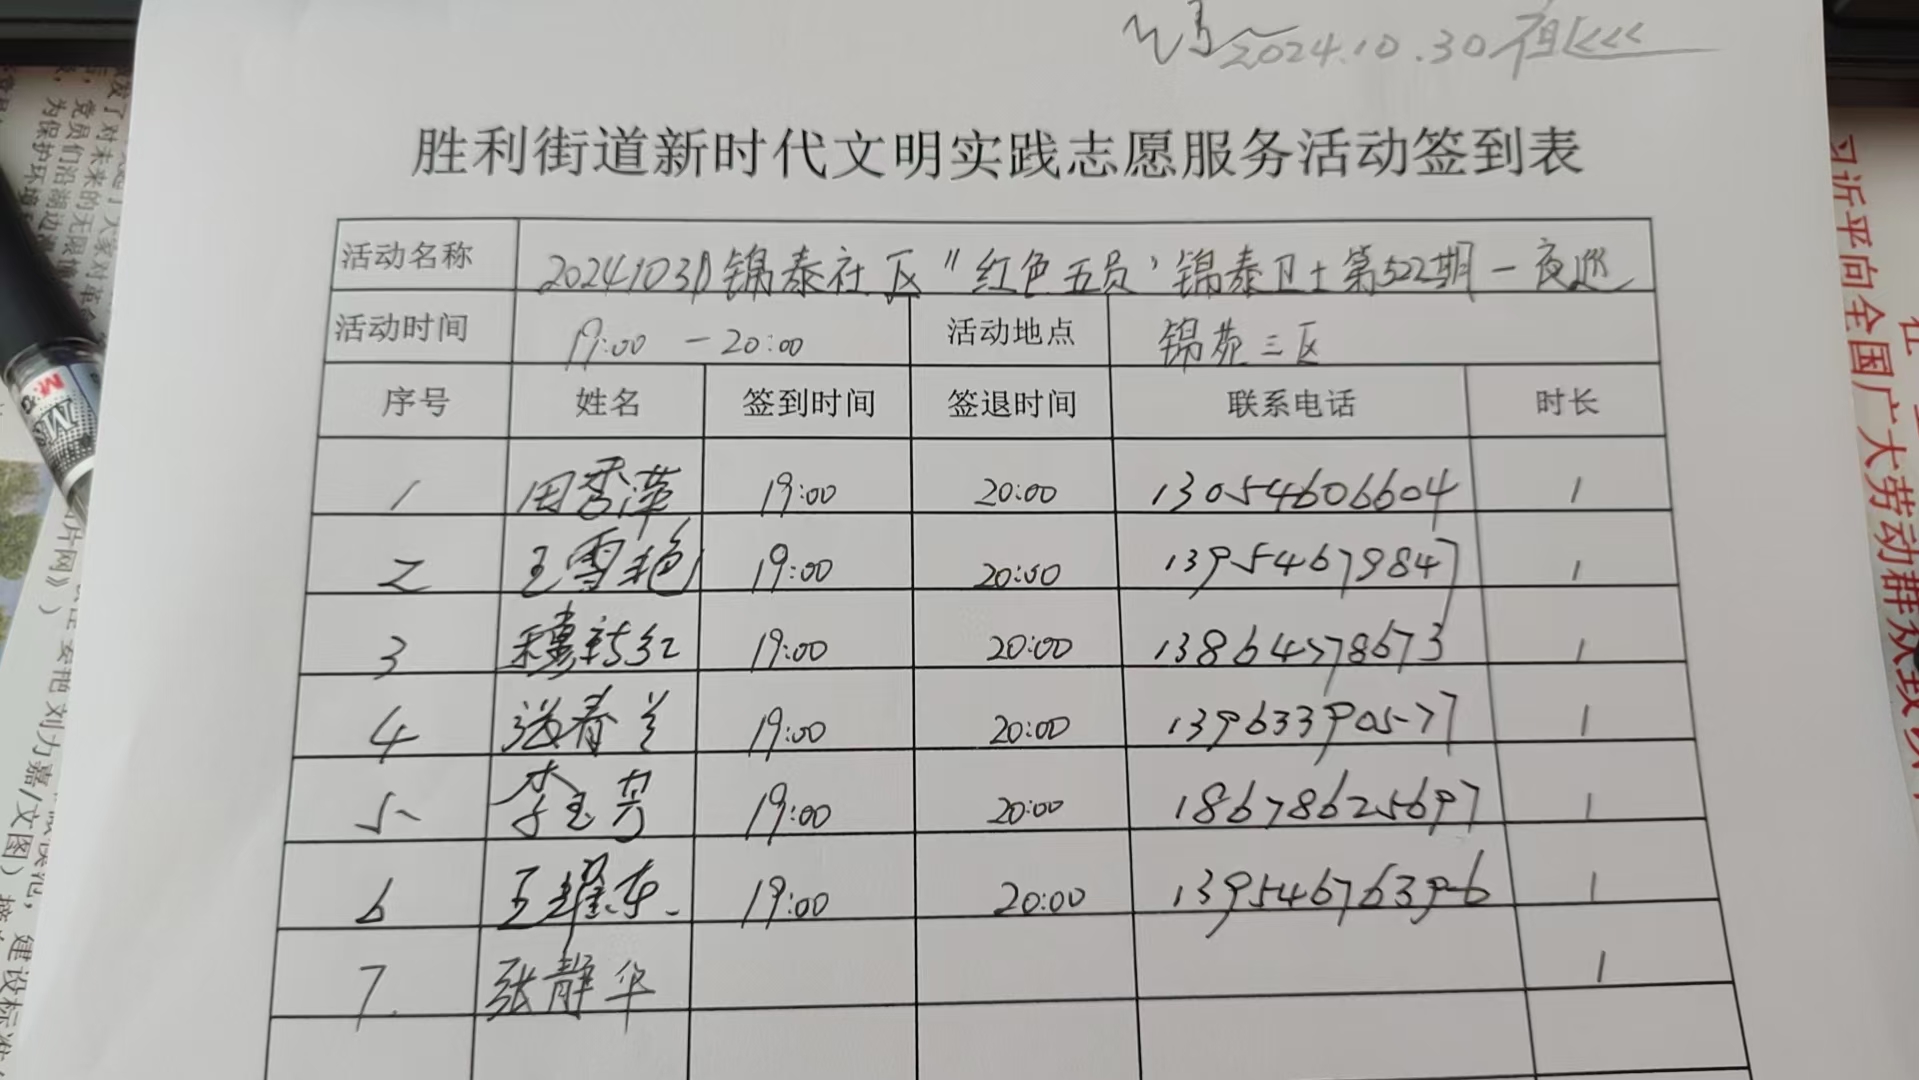 2024.10.30夜巡
胜利街道新时代文明实践志愿服务活动签到表
活动名称 20241030锦泰社区"红色五员"锦泰卫士第522期—夜巡
活动时间 19:00 — 20:00 活动地点 锦苑三区
序号 姓名 签到时间 签退时间 联系电话 时长
1 田秀萍 19:00 20:00 13054606604 1
2 王雪艳 19:00 20:00 13954679847 1
3 穗红 19:00 20:00 13864778673 1
4 张春兰 19:00 20:00 13963390577 1
5 李玉芳 19:00 20:00 18678625697 1
6 王耀东 19:00 20:00 13954676396 1
7. 张静华 1
习近平向全国广大劳动群众致